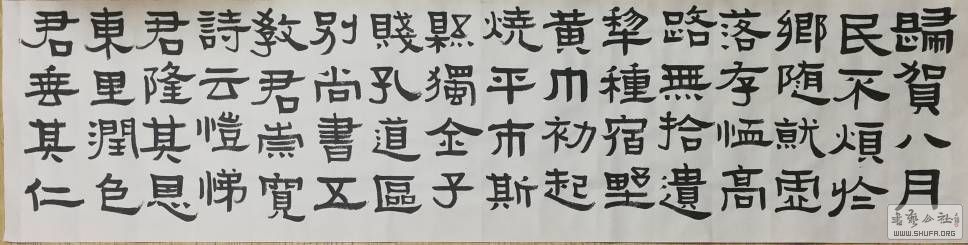 歸賀八月
民不煩於
鄉随就虛
落存恤高
路無拾遺
犂種宿野
黃巾初起
燒平市斯
縣獨金子
賤孔道區
别尚書五
教君崇寬
詩云愷悌
君隆其恩
東里潤色
君垂其仁
書藝公社
WWW.SHUFA.ORG